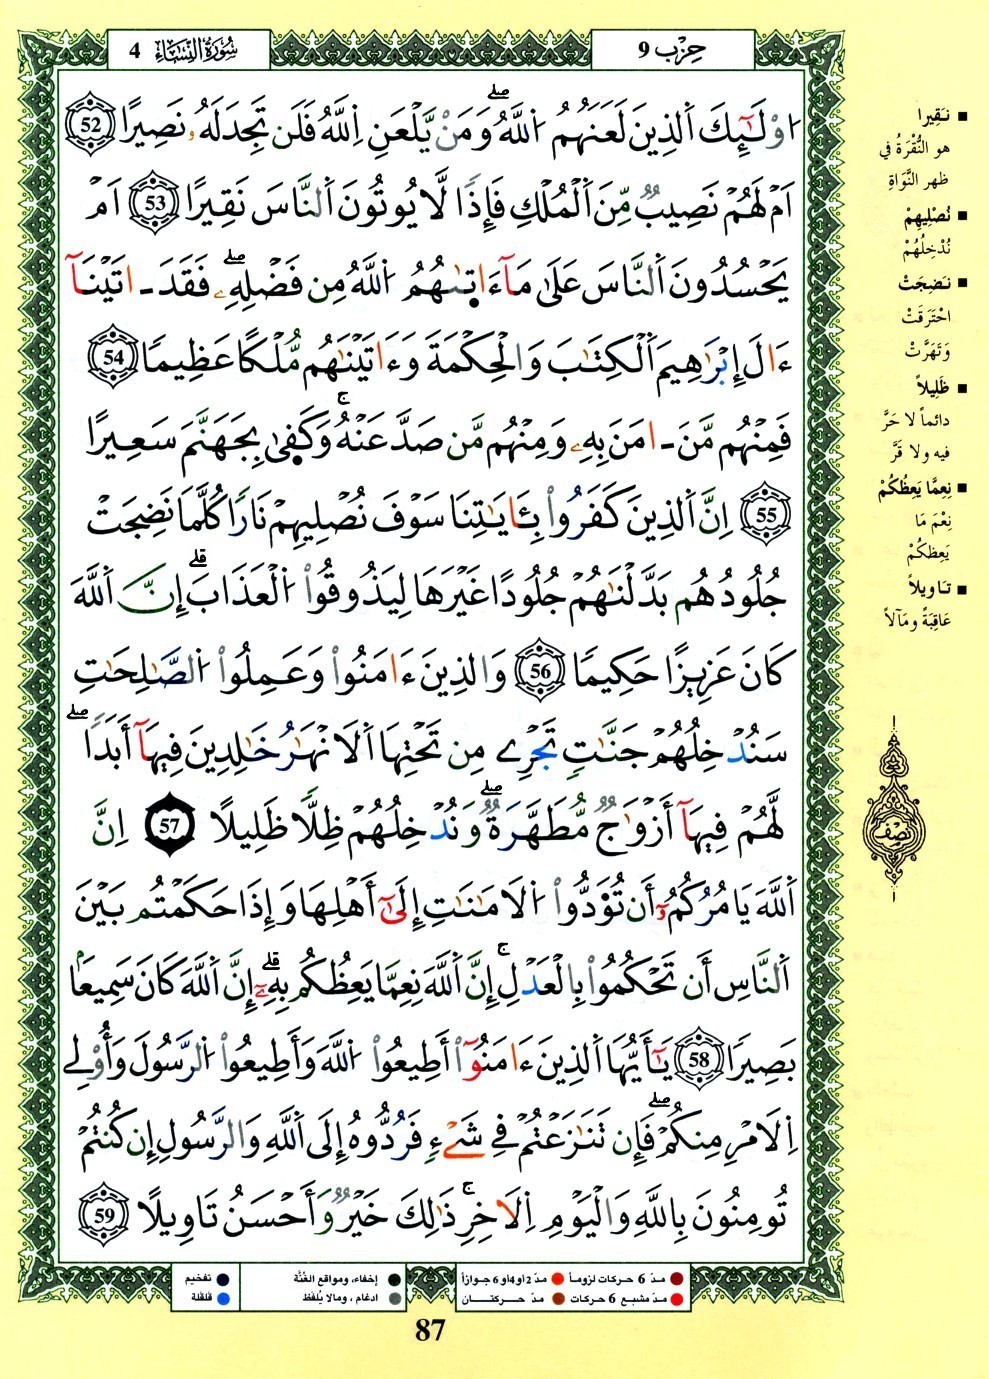 سُورَةُ النِّسَاءِ 4
حِزْب 9
اُوْلَٰٓئِكَ اَلذِينَ لَعَنَهُمُ اُللَّهُۖ وَمَنْ يَّلْعَنِ اِللَّهُ فَلَن تَجِدَ لَهُۥ نَصِيرًا 52
اَمْ لَهُمْ نَصِيبٞ مِّنَ اَلْمُلْكِ فَإِذٗا لَّا يُوتُونَ اَلنَّاسَ نَقِيرًا 53 اَمْ
يَحْسُدُونَ اَلنَّاسَ عَلَىٰ مَآ ءَاتٜىٰهُمُ اُللَّهُ مِن فَضْلِهِۦۖ فَقَدَ ـ اتَيْنَآ
ءَالَ إِبْرَٰهِيمَ اَلْكِتَٰبَ وَالْحِكْمَةَ وَءَاتَيْنَٰهُم مُّلْكًا عَظِيمًا 54
فَمِنْهُم مَّنَ ـ امَنَ بِهِۦ وَمِنْهُم مَّن صَدَّ عَنْهُۚ وَكَفٜىٰ بِجَهَنَّمَ سَعِيرًا
55 اِنَّ اَلذِينَ كَفَرُواْ بِـَٔايَٰتِنَا سَوْفَ نُصْلِيهِمْ نَارٗا كُلَّمَا نَضِجَتْ
جُلُودُهُم بَدَّلْنَٰهُمْ جُلُودًا غَيْرَهَا لِيَذُوقُواْ اُلْعَذَابَۗ إِنَّ اَللَّهَ
كَانَ عَزِيزًا حَكِيمًا 56 وَالذِينَ ءَامَنُواْ وَعَمِلُواْ اُلصَّٰلِحَٰتِ
سَنُدْخِلُهُمْ جَنَّٰتٖ تَجْرِے مِن تَحْتِهَا اَلَانْهَٰرُ خَٰلِدِينَ فِيهَآ أَبَدٗاۖ
لَّهُمْ فِيهَآ أَزْوَٰجٞ مُّطَهَّرَةٞۖ وَنُدْخِلُهُمْ ظِلّٗا ظَلِيلًا 57 اِنَّ
اَللَّهَ يَامُرُكُمُۥٓ أَن تُؤَدُّواْ اُلَامَٰنَٰتِ إِلَىٰٓ أَهْلِهَا وَإِذَا حَكَمْتُم بَيْنَ
اَلنَّاسِ أَن تَحْكُمُواْ بِالْعَدْلِۚ إِنَّ اَللَّهَ نِعِمَّا يَعِظُكُم بِهِۦٓۗ إِنَّ اَللَّهَ كَانَ سَمِيعَۢا
بَصِيرًا 58 يَٰٓأَيُّهَا اَلذِينَ ءَامَنُوٓاْ أَطِيعُواْ اُللَّهَ وَأَطِيعُواْ اُلرَّسُولَ وَأُوْلِے
اِلَامْرِ مِنكُمْۖ فَإِن تَنَٰزَعْتُمْ فِے شَےْءٖ فَرُدُّوهُ إِلَى اَللَّهِ وَالرَّسُولِ إِن كُنتُمْ
تُومِنُونَ بِاللَّهِ وَالْيَوْمِ اِلَاخِرِۚ ذَٰلِكَ خَيْرٞ وَأَحْسَنُ تَاوِيلًا 59
■ نَقِيرا
هو النُّقْرَةُ في
ظهر النَّوَاةِ
■ نُصْلِيهِمْ
نُدْخِلُهُمْ
■ نَضِجَتْ
احْتَرَقَتْ
وَتَهَرَّتْ
■ ظَلِيلاً
دائماً لا حَرَّ
فيه ولا قَرَّ
■ نِعِمَّا يَعِظُكُمْ
نِعْمَ مَا
يَعِظكُمْ
■ تاويلاً
عَاقِبَةً ومَآلاً
نِصْف
● مدّ 6 حركات لزوماً ● مدّ 2 أو 4 أو 6 جوازاً
● مدّ مشبع 6 حركات ● مدّ حركتان
● إخفاء، ومواقع الغُنَّة
● ادغام ، ومالا يُلفَظ
● تفخيم
● قلقلة
87